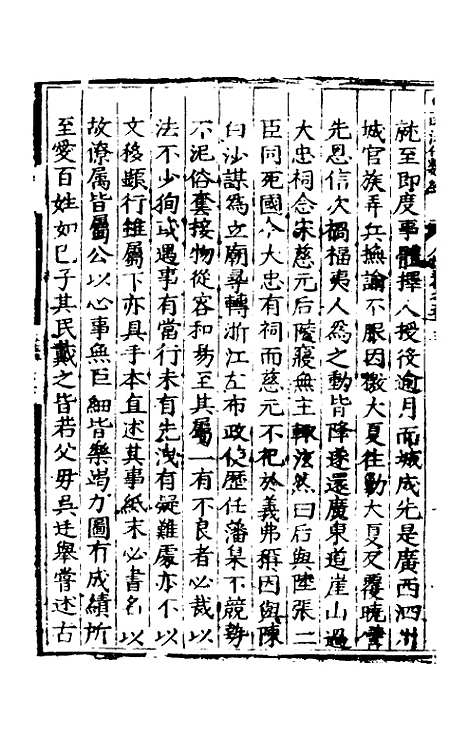 就至即度事體擇人授役逾月而城成先是廣西泗州
城官族弄兵撫諭不服因檄大夏往勦大夏反覆曉譬
先恩信次禍福夷人為之動皆降遂還廣東道崖山過
大忠祠念宋慈元后陵寢無主輒泫然曰后與陸張二
臣同死國今大忠有祠而慈元不祀於義弗稱因與陳
白沙謀為立廟尋轉浙江左布政使歷任藩臬不競勢
不泥俗套接物從容和易至其屬一有不良者必裁以
法不少狥或遇事有當行未有先洩有疑難處亦不以
文移顯行雖屬下亦具手本直述其事紙末必書名以
故僚属皆屬公以心事無巨細皆樂竭力圖有成績所
至愛百姓如已子其民戴之皆若父毋吳廷舉嘗述古